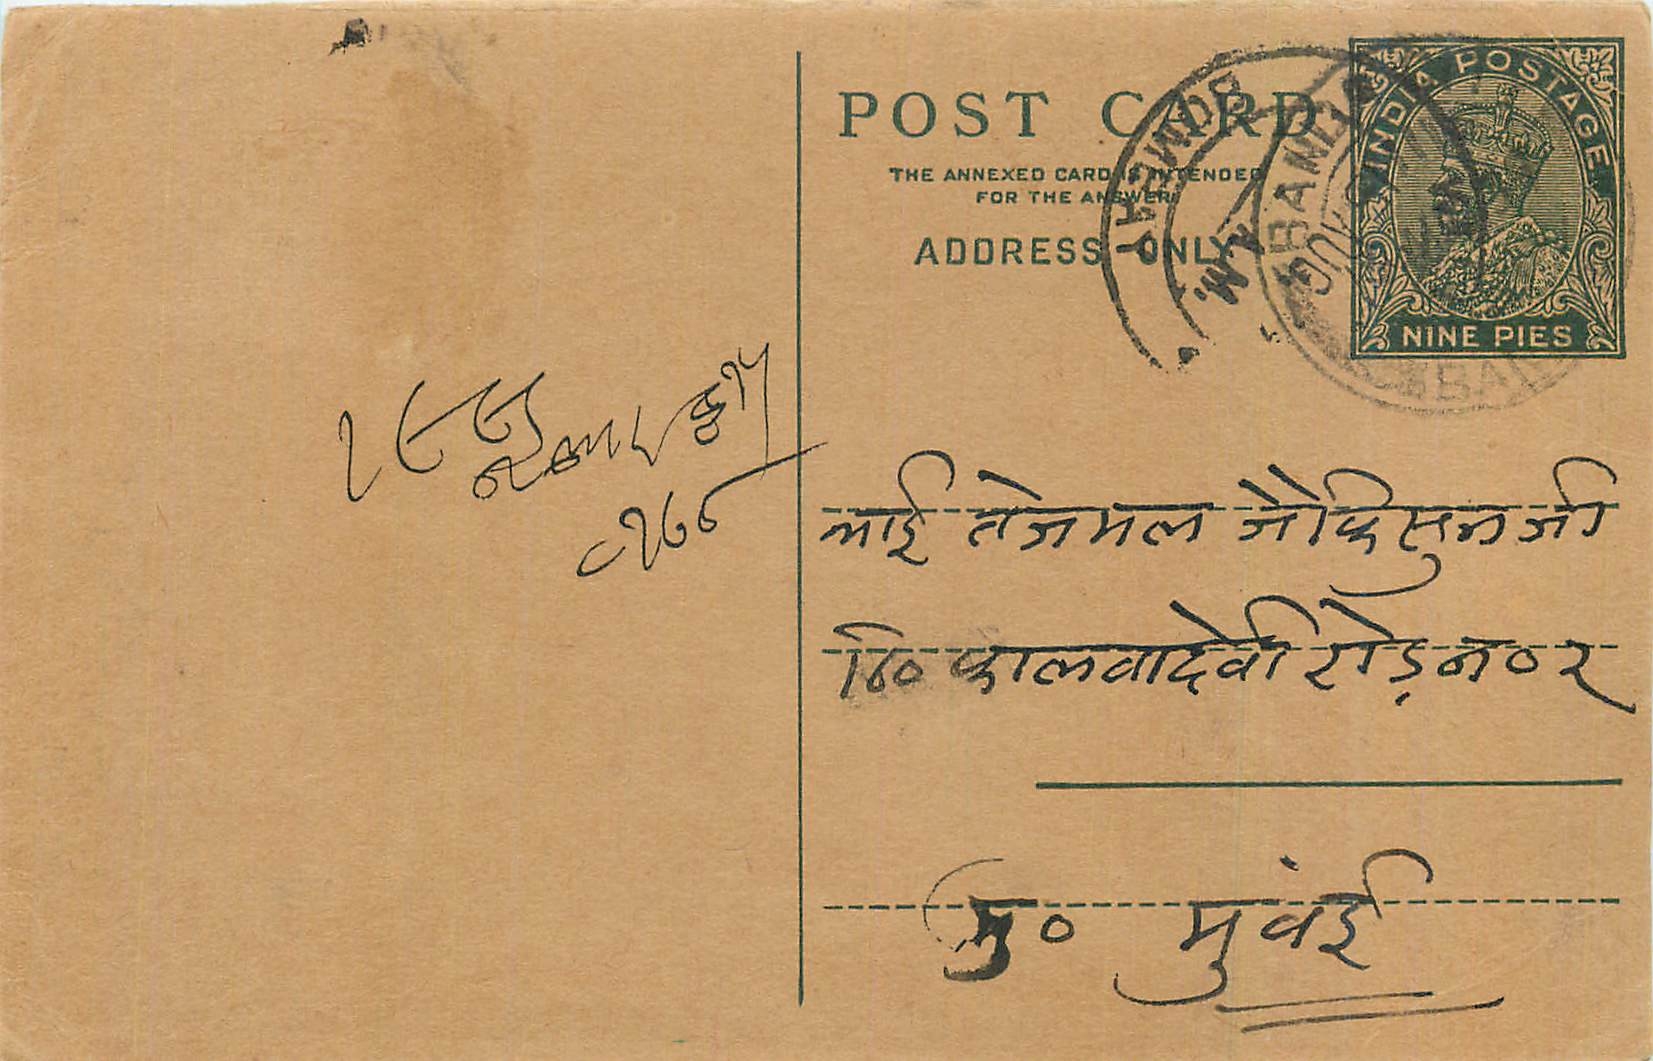 POST CARD
THE ANNEXED CARD IS INTENDED
FOR THE ANSWER
ADDRESS ONLY
INDIA POSTAGE
NINE PIES
BOMBAY
भाई तेजमल जैकिसुनजी
ठि० कालवादेवी रोड़ न० २
मु० मुंवई